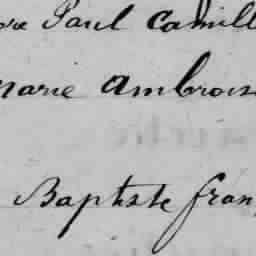 Paul Camill
marie ambrois
Baptiste fran